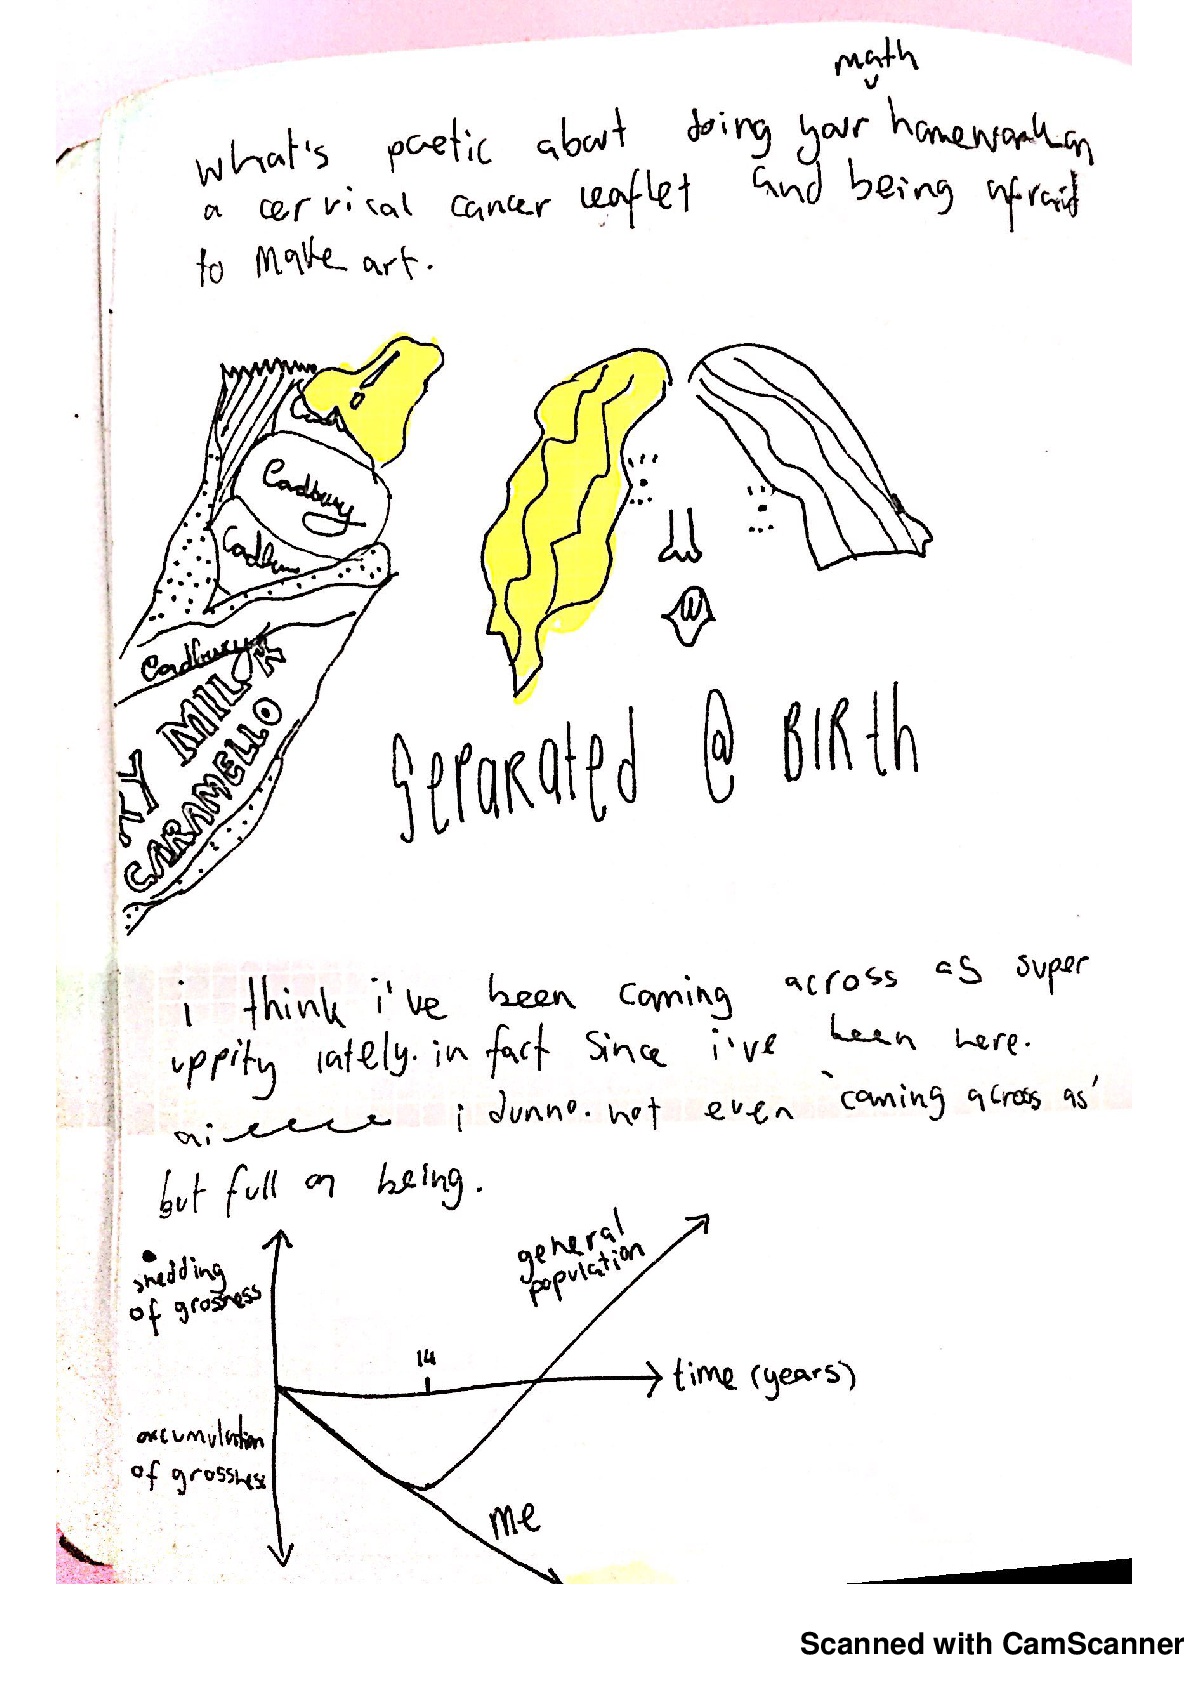 math
what's poetic about doing your homework on
a cervical cancer leaflet and being afraid
to make art.
Cad
Cadbury
Cadbu
Cadbury
RY MILK
CARAMELLO
SEPARATED @ BIRTH
i think i've been coming across as super
uppity lately. in fact since i've been here.
i dunno. not even 'coming across as'
but full on being.
general
population
shedding
of grossness
14
time (years)
accumulation
of grossness
me
Scanned with CamScanner